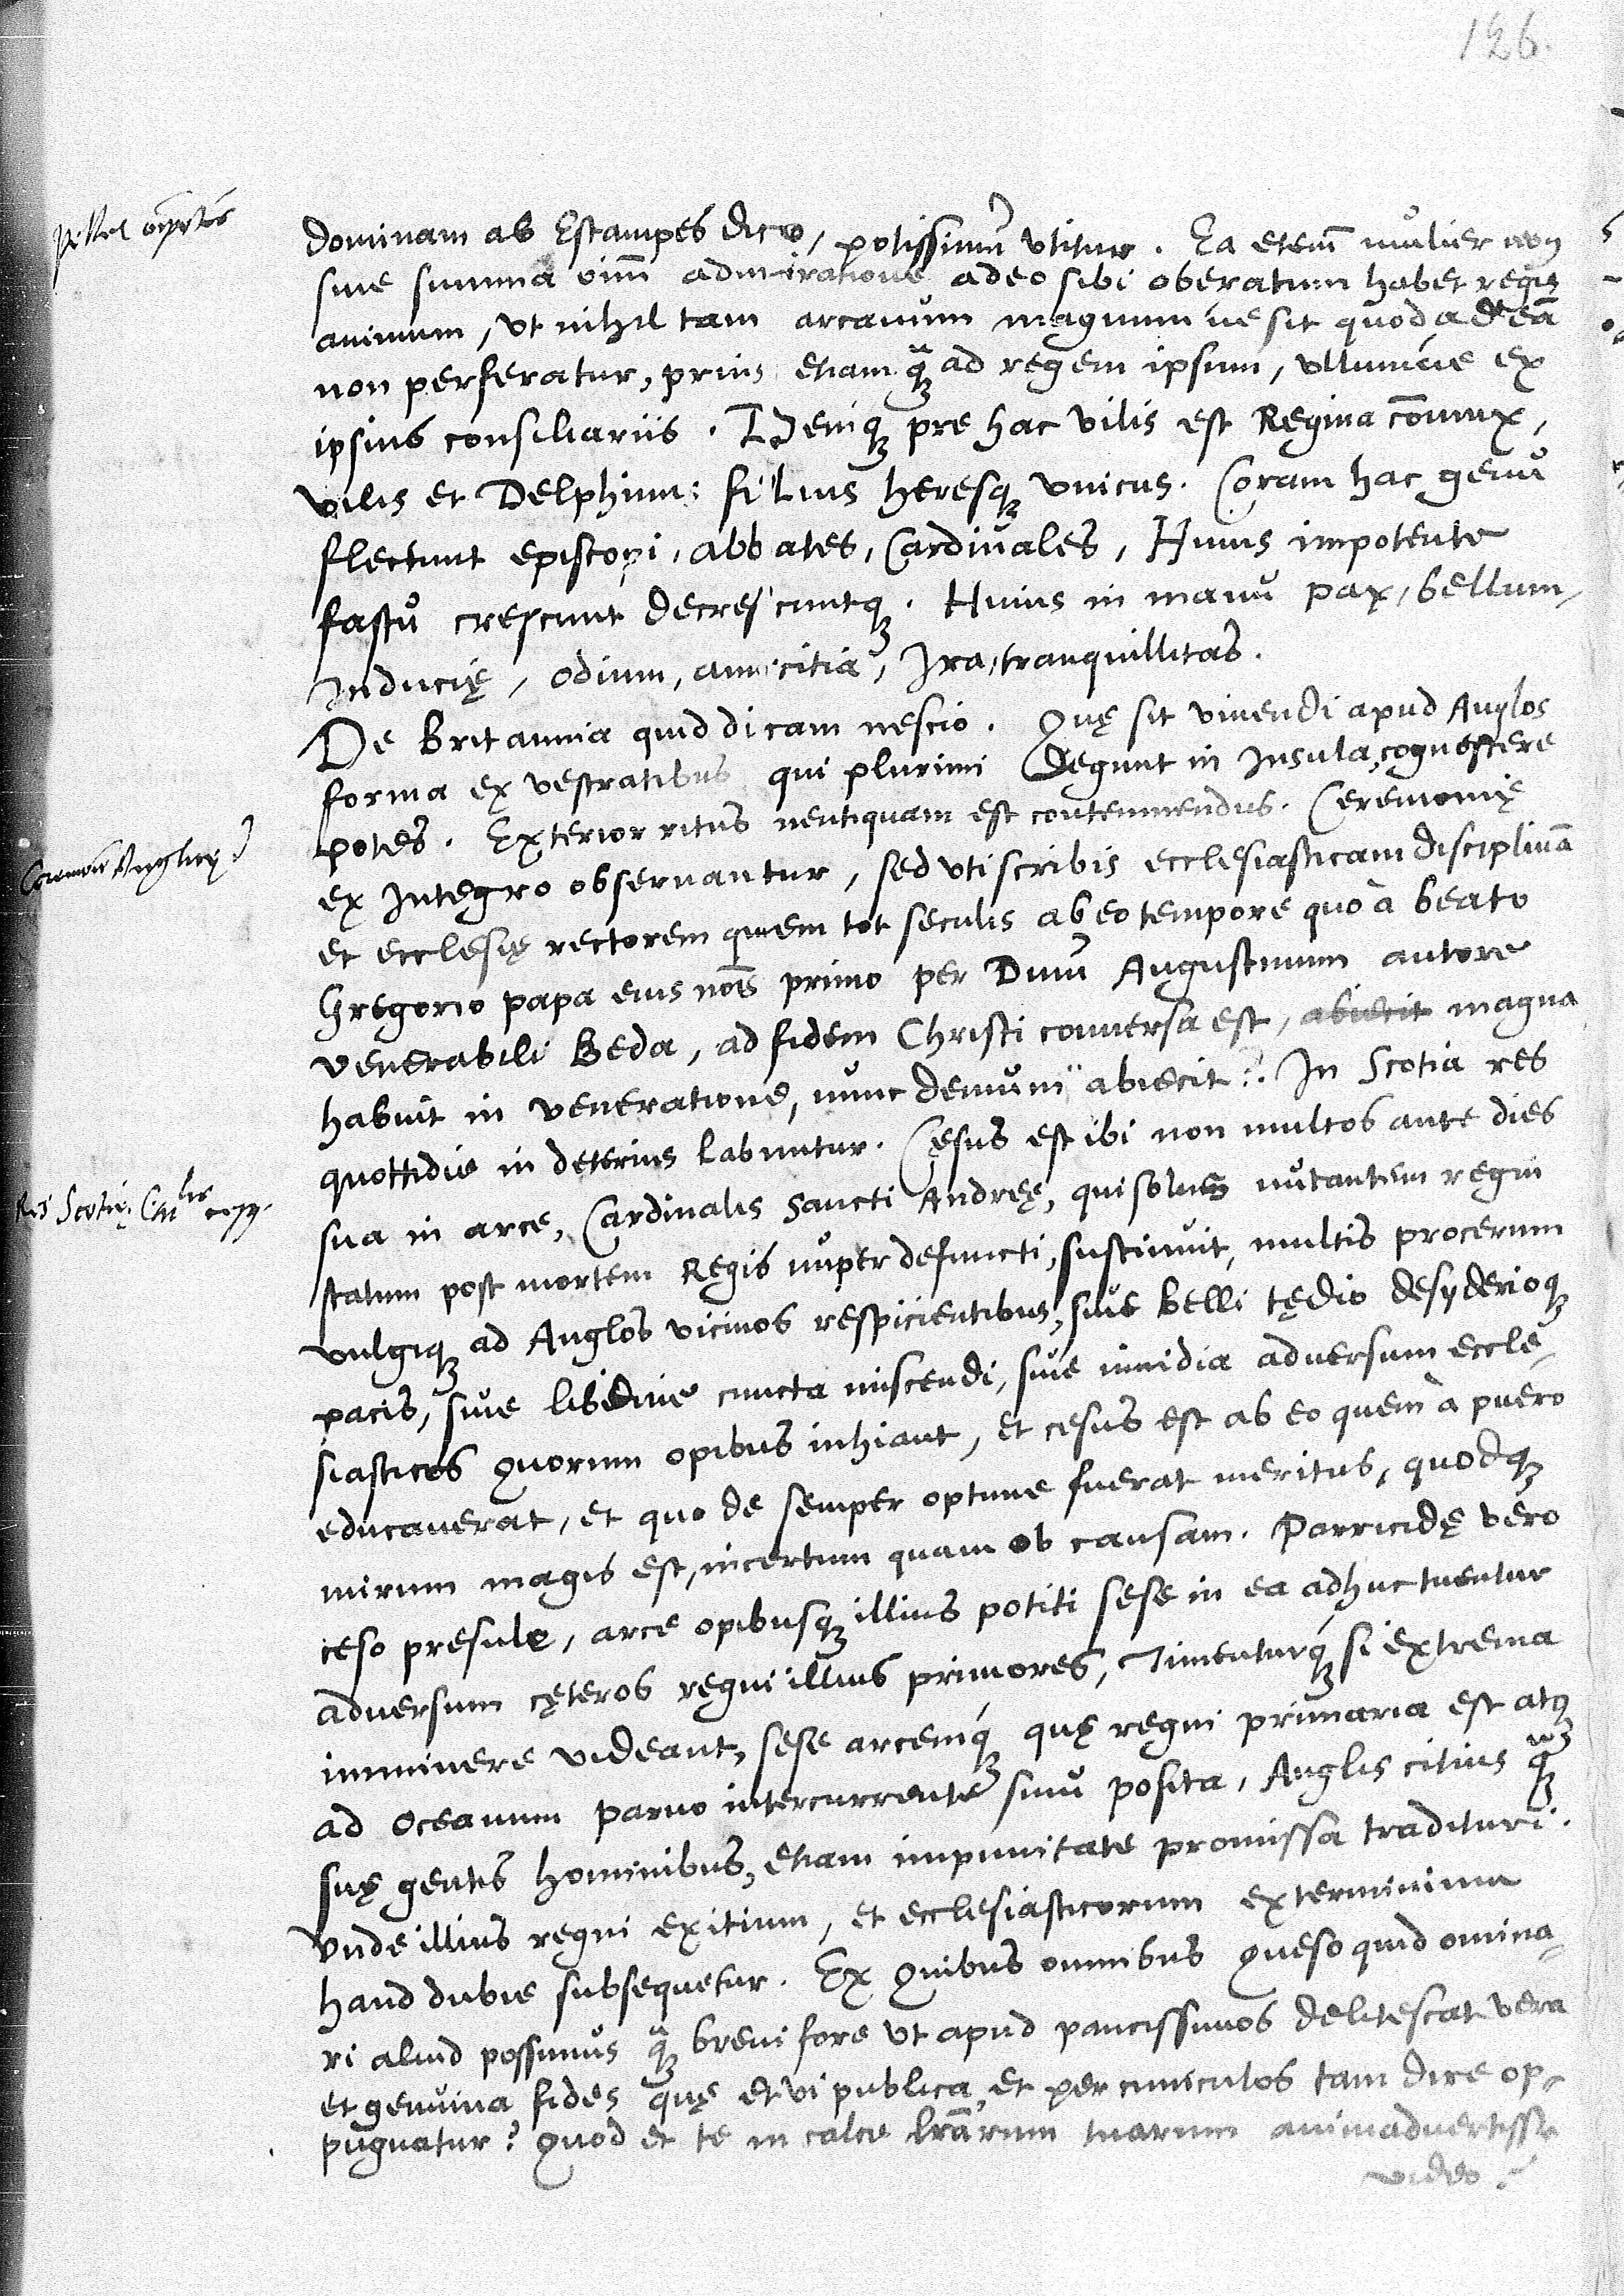 126.
dominam ab Estampes dico, potissimũ vtitur. Ea etem̃ mulier non
sine summa oim̃ admiratione adeo sibi oberatum habet regis
animum, vt nihil tam arcanum magnumúe sit quod ad eã
non perferatur, prius etiam q̃ꝫ ad regem ipsum, vllumúe ex
ipsius consiliariis. Deniqꝫ pre hac vilis est Regina cõiunx,
vilis et Delphinus filius heresqꝫ vnicus. Coram hac genu
flectunt episcopi, abbates, Cardinales, Huius impotente
fastu crescunt decrescuntqꝫ. Huius in manu pax, bellum,
Inducię, odium, amicitia, Ira, tranquillitas.
De Britannia quid dicam nescio. Quę sit viuendi apud Anglos
forma ex vestratibus qui plurimi Degunt in Insula, cognoscere
potes. Exterior ritus neutiquam est contemnendus. Ceremonię
ex Integro obseruantur, sed vti scribis ecclesiasticam disciplinã
et ecclesię rectorem quem tot seculis ab eo tempore quo à beato
Gregorio papa eius nois̃ primo per Diuũ Augustinum autore
venerabili Beda, ad fidem Christi conuersa est, abiecit magna
habuit in veneratione, nunc demum abiecit. In Scotia res
quottidie in deterius labuntur. Cęsus est ibi non multos ante dies
sua in arce, Cardinalis Sancti Andreę, qui solus nutantem regni
statum post mortem Regis nuper defuncti, sustinuit, multis procerum
vulgiqꝫ ad Anglos vicinos respicientibus, siue belli tędio desyderioqꝫ
pacis, siue libidine cuncta miscendi, siue inuidia aduersum eccle-
siasticos quorum opibus inhiant, et cesus est ab eo quem à puero
educauerat, et quo de semper optime fuerat meritus, quodqꝫ
mirum magis est, incertum quam ob causam. Parricidę vero
ceso presule, arce opibusqꝫ illius potiti sese in ea adhuc tuentur
aduersum cęteros regni illius primores, Timenturqꝫ si extrema
imminere videant, sese arcemqꝫ quę regni primaria est atqꝫ
ad Oceanum paruo intercurrente sinu posita, Anglis citius q̃ꝫ
suę gentis hominibus, etiam impunitate promissa tradituri.
Vnde illius regni exitium, et ecclesiasticorum exterminium
haud dubie subsequetur. Ex quibus omnibus queso quid omina-
ri aliud possimus q̃ꝫ breui fore vt apud paucissimos delitescat vera
et genuina fides quę et vi publica et per cuniculos tam dire op-
pugnatur? Quod et te in calce lrãrum tuarum animaduertisse
video.
Res Scotię.